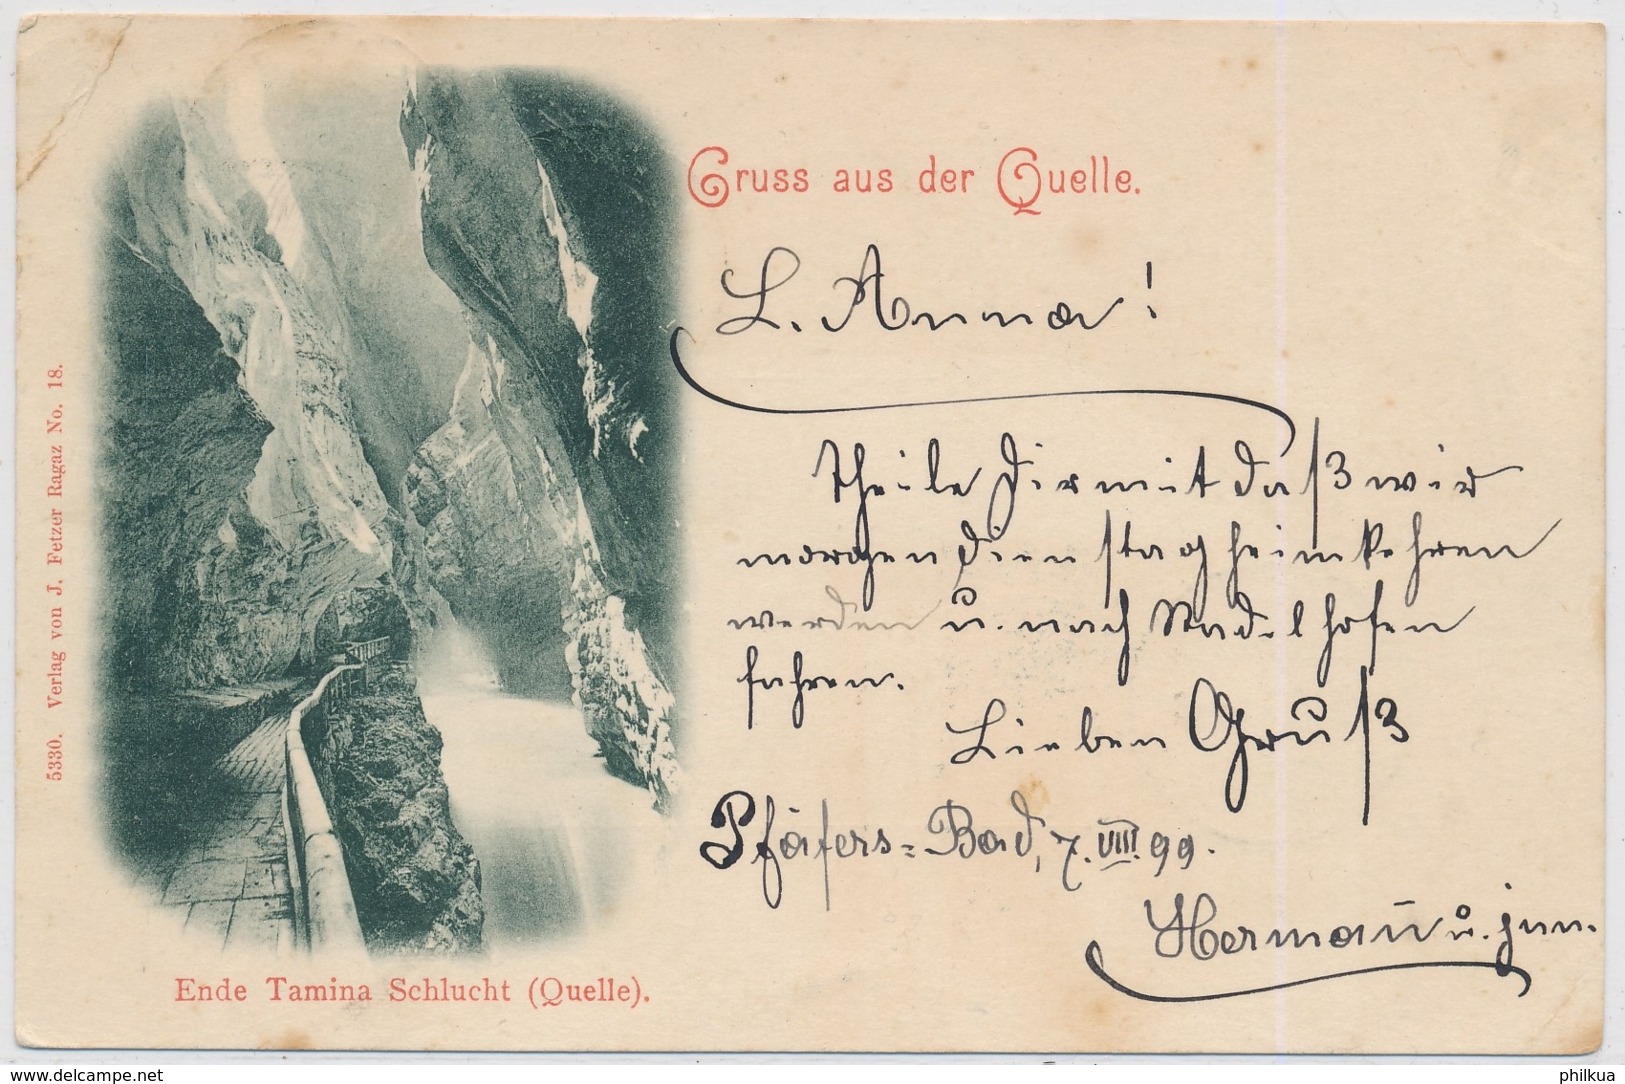 Gruss aus der Quelle.
L. Anna!
Theile Dir mit daß wir
morgen Dienstag heimkehren
werden u. nach Nadelhofen
fahren.
Lieben Gruß
Pfäfers-Bad, 7. VIII. 99.
Hermañ u. jun.
Ende Tamina Schlucht (Quelle).
5330. Verlag von J. Fetzer Ragaz No. 18.
www.delcampe.net
philkua